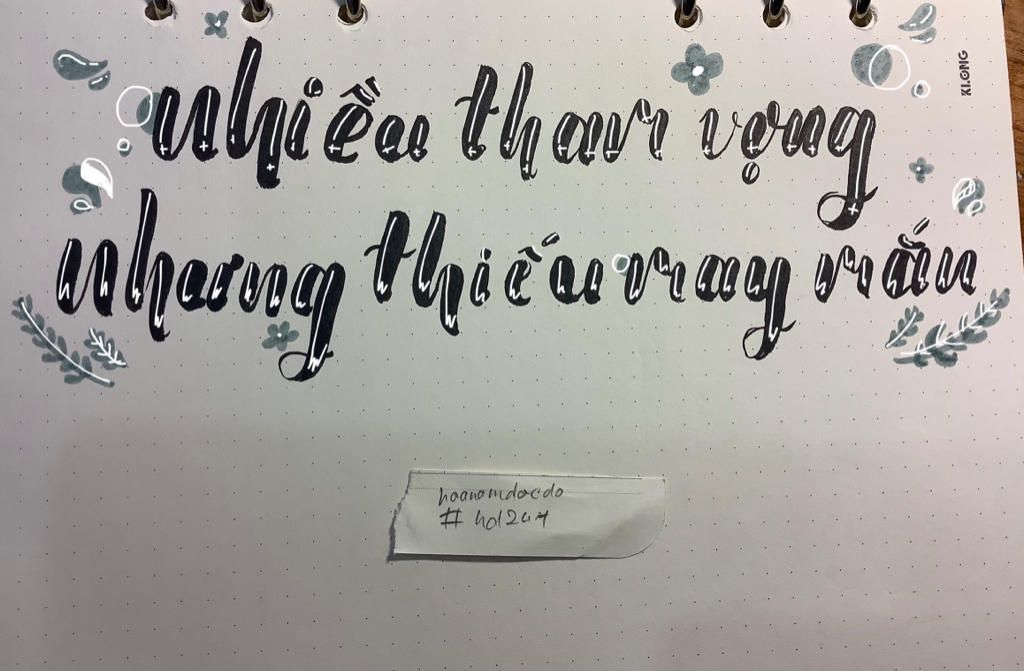 Nhiều tham vọng
KLONG
Nhưng thiếu may mắn
hoanamdocdo
# hd247